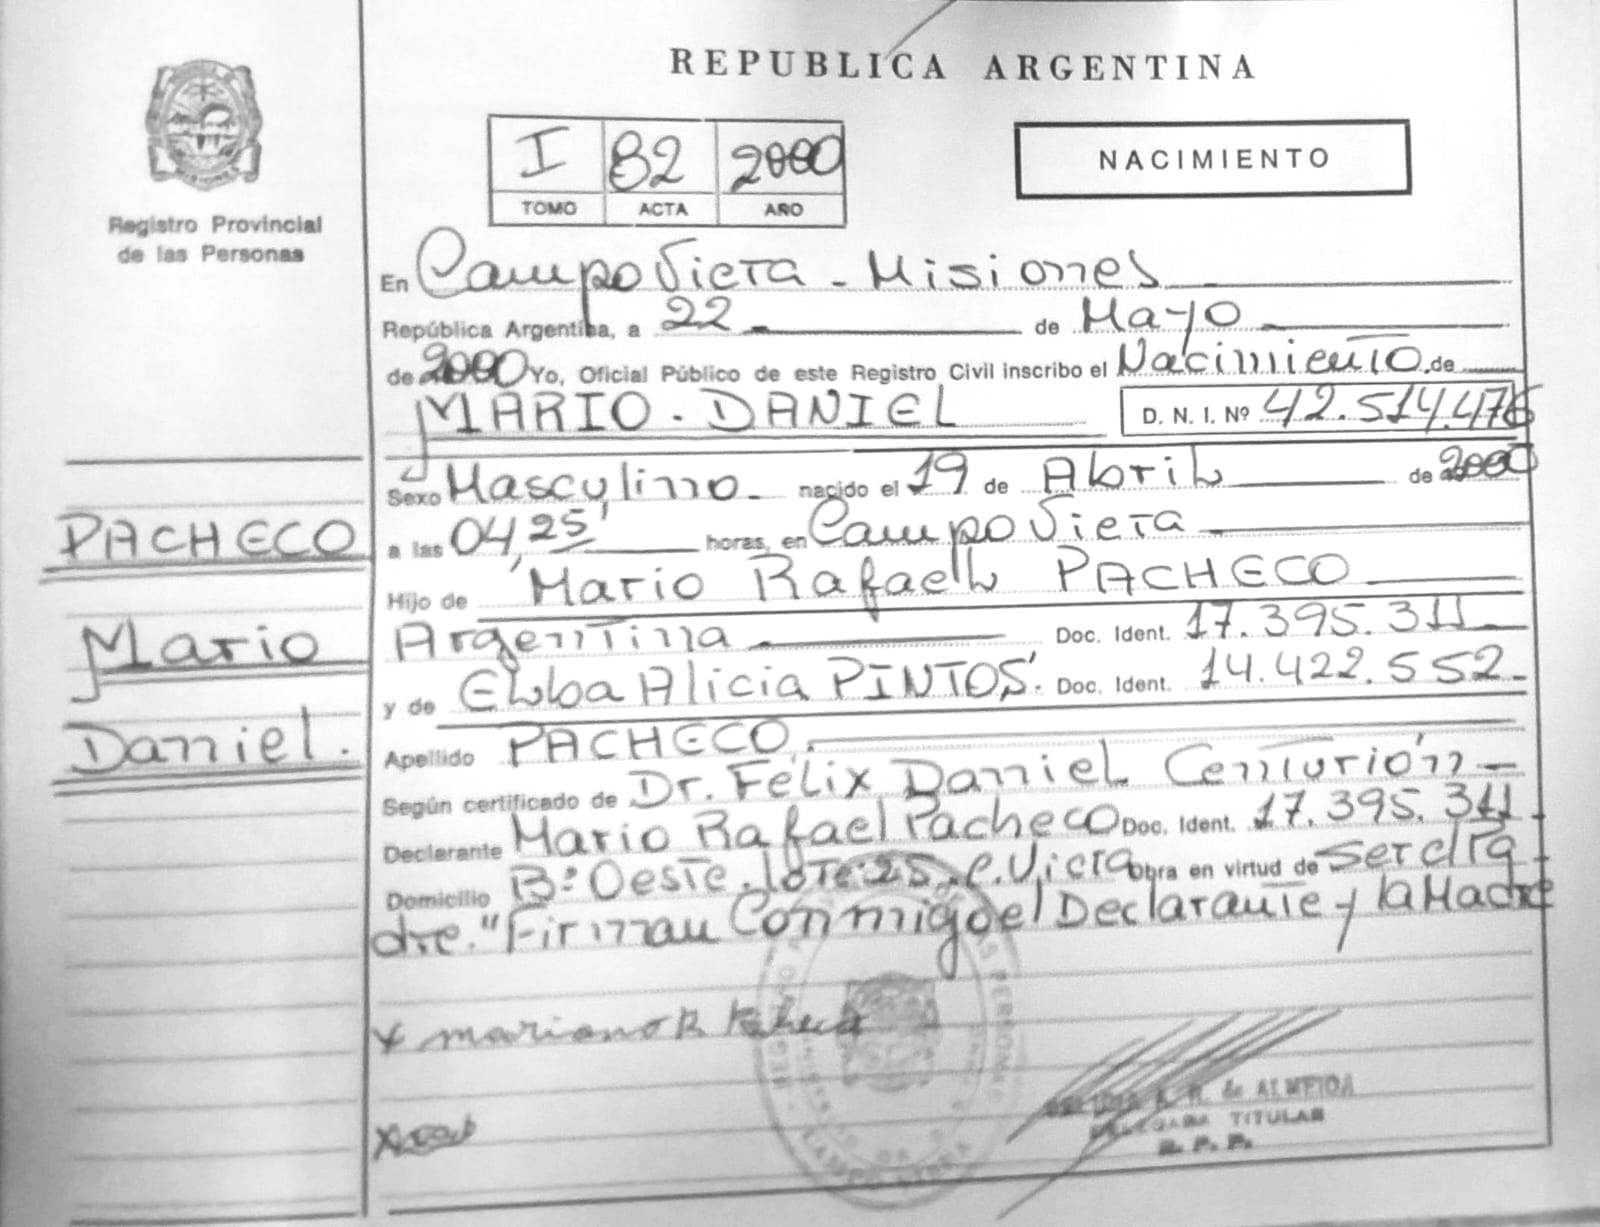 REPUBLICA ARGENTINA
I 82 2000
TOMO ACTA AÑO
NACIMIENTO
Registro Provincial
de las Personas
PACHECO
Mario
Daniel.
En Campo Viera - Misiones
República Argentina, a 22 de Mayo
de 2000 Yo, Oficial Público de este Registro Civil inscribo el Nacimiento de
MARIO - DANIEL D. N. I. Nº 42.514.476
Sexo Masculino nacido el 19 de Abril de 2000
a las 04,25' horas, en Campo Viera
Hijo de Mario Rafael PACHECO
Argentina Doc. Ident. 17.395.311
y de Elba Alicia PINTOS. Doc. Ident. 14.422.552
Apellido PACHECO.
Según certificado de Dr. Félix Daniel Centurión
Declarante Mario Rafael Pacheco Doc. Ident. 17.395.311
Domicilio Bº Oeste. lote 25. C. Viera obra en virtud de ser el Pa
dre. "Firman Conmigo el Declarante y la Madre
A. R. de ALMEIDA
DELEGADA TITULAR
R. P. P.